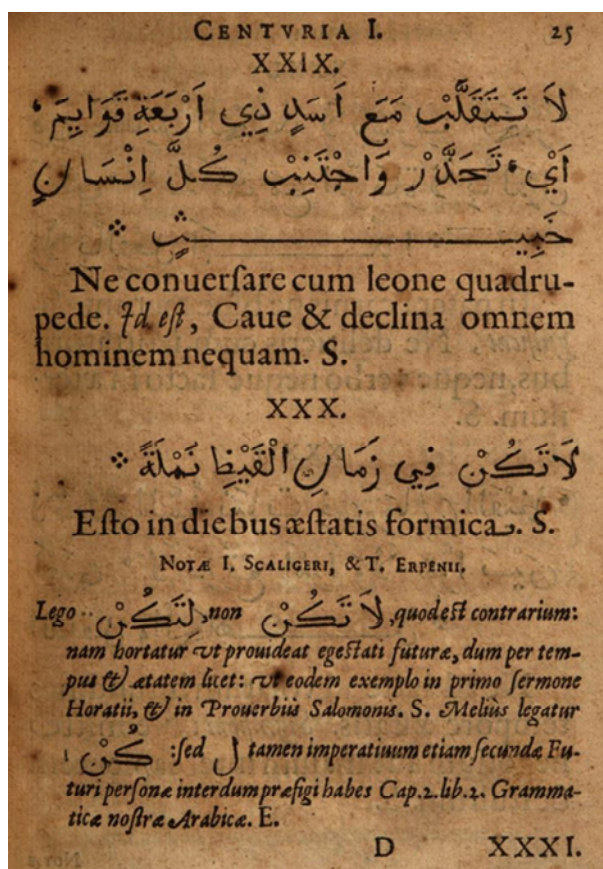 CENTVRIA I. 25
XXIX.
لاَ تَسْتَقَلَّبْ مَعَ اَسَدٍ ذِي اَرْبَعَةِ قَوَايِمَ،
اَيْ، تَحَذَّرْ وَاجْتَنِبْ كُلَّ اِنْسَانٍ
خَبِيثٍ ܀
Ne conuerſare cum leone quadru-
pede. Id eſt, Caue & declina omnem
hominem nequam. S.
XXX.
لاَ تَكُنْ فِي زَمَانِ الْقَيْظِ نَمْلَةً ܀
Eſto in diebus æſtatis formica. S.
NOTÆ I. SCALIGERI, & T. ERPENII.
Lego لِتَكُنْ, non لاَ تَكُنْ, quod eſt contrarium:
nam hortatur vt prouideat egeſtati futuræ, dum per tem-
pus & ætatem licet: vt eodem exemplo in primo ſermone
Horatii, & in Prouerbiis Salomonis. S. Meliùs legatur
كُنْ: ſed لِ tamen imperatiuum etiam ſecundæ Fu-
turi perſonæ interdum præfigi habes Cap. 2. lib. 2. Gramma-
ticæ noſtræ Arabicæ. E.
D XXXI.